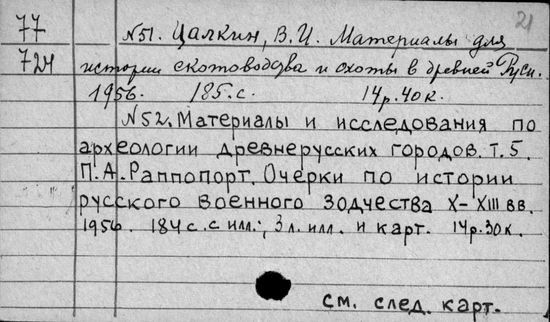 21
77 N51. Цалкин, В.И. Материалы для
724 истории скотоводства и охоты в древней Руси.
1956. 185.с. 14р.40к.
N52. Материалы и исследования по
археологии древнерусских городов. т. 5.
П.А. Раппопорт. Очерки по истории
русского военного зодчества X-XIII вв.
1956. 184 с. с илл.; 3 л. илл. и карт. 14р.30к.
см. след. карт.